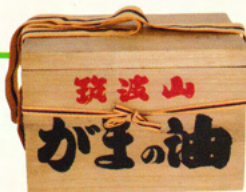 筑波山
がまの油